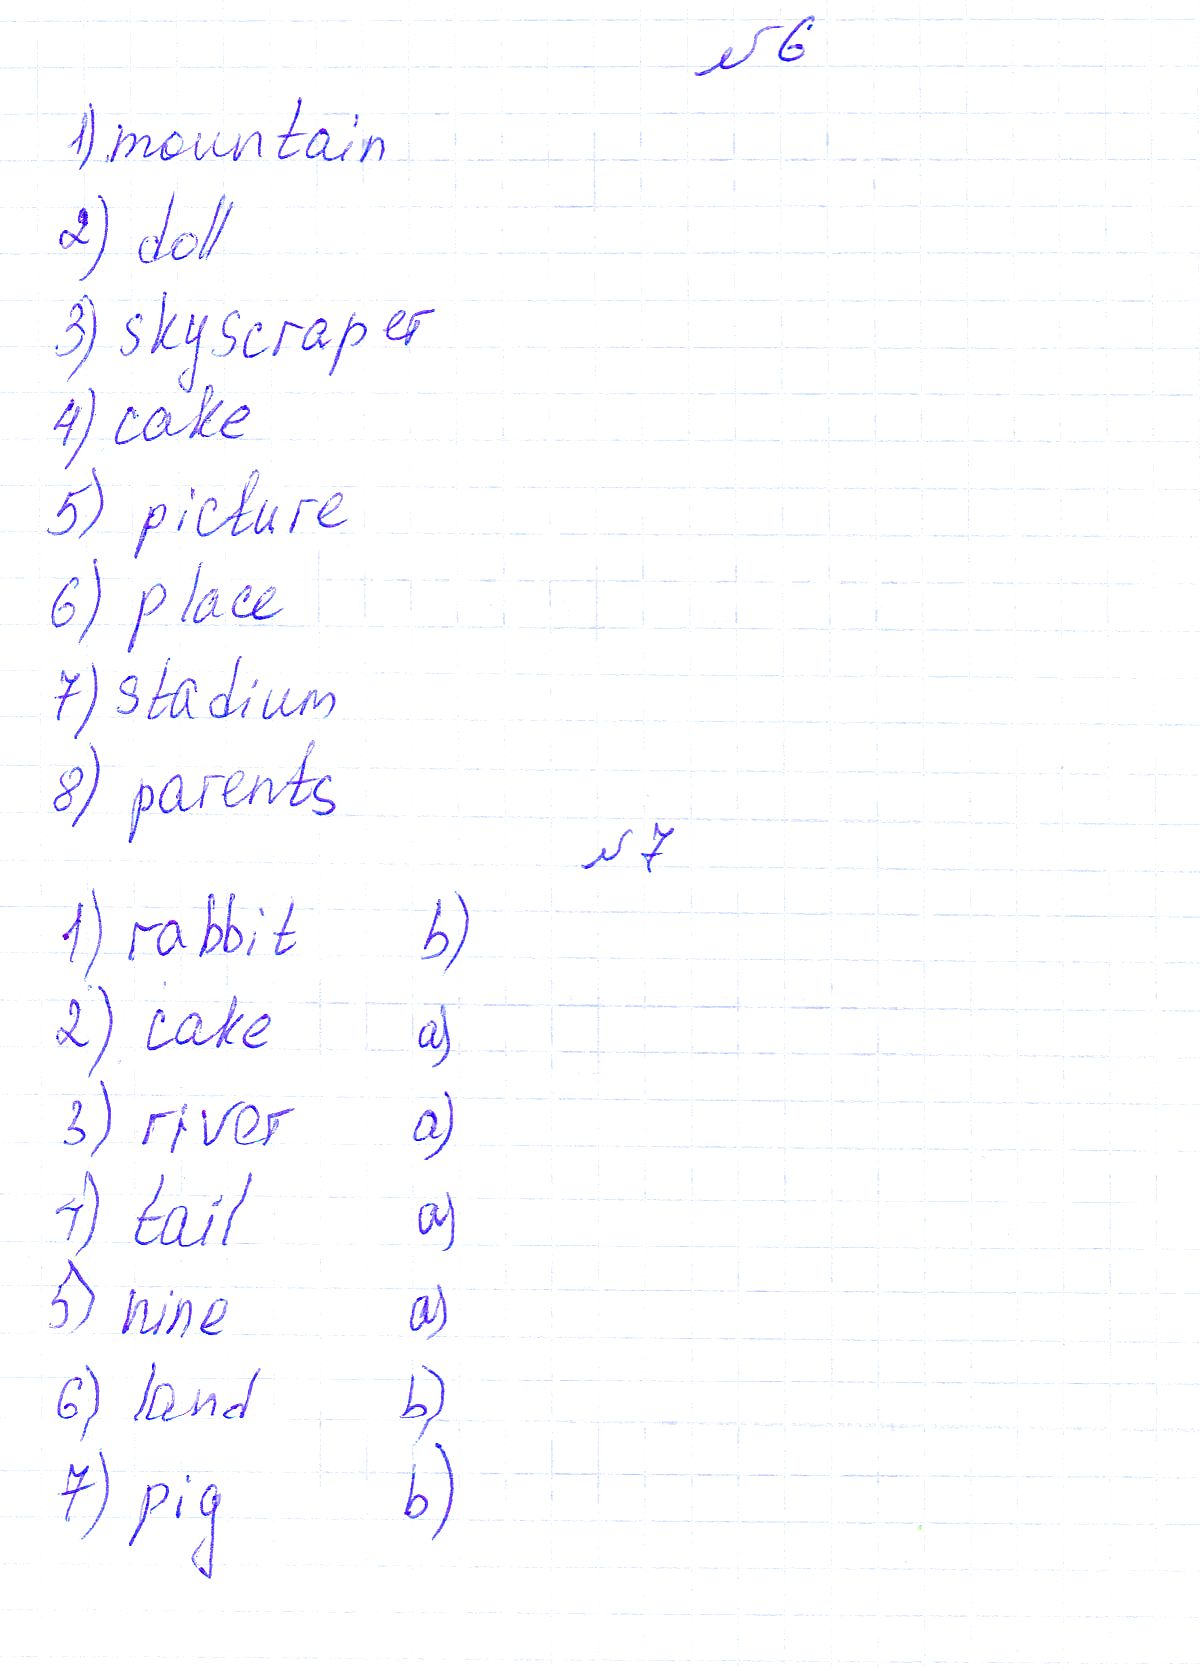 №6
1) mountain
2) doll
3) skyscraper
4) cake
5) picture
6) place
7) stadium
8) parents
№7
1) rabbit b)
2) cake a)
3) river a)
4) tail a)
5) nine a)
6) land b)
7) pig b)